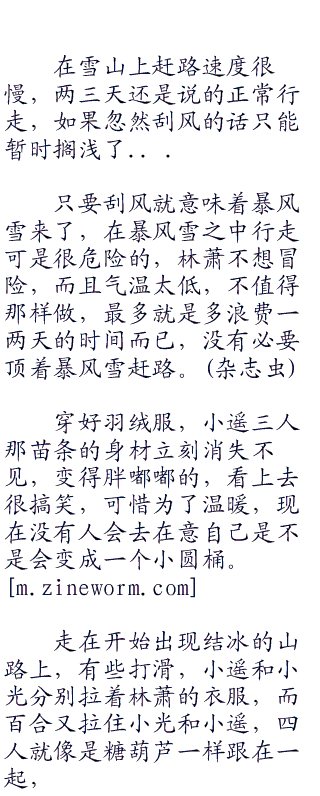 在雪山上赶路速度很
慢，两三天还是说的正常行
走，如果忽然刮风的话只能
暂时搁浅了...
只要刮风就意味着暴风
雪来了，在暴风雪之中行走
可是很危险的，林萧不想冒
险，而且气温太低，不值得
那样做，最多就是多浪费一
两天的时间而已，没有必要
顶着暴风雪赶路。(杂志虫)
穿好羽绒服，小遥三人
那苗条的身材立刻消失不
见，变得胖嘟嘟的，看上去
很搞笑，可惜为了温暖，现
在没有人会去在意自己是不
是会变成一个小圆桶。
[m.zineworm.com]
走在开始出现结冰的山
路上，有些打滑，小遥和小
光分别拉着林萧的衣服，而
百合又拉住小光和小遥，四
人就像是糖葫芦一样跟在一
起，